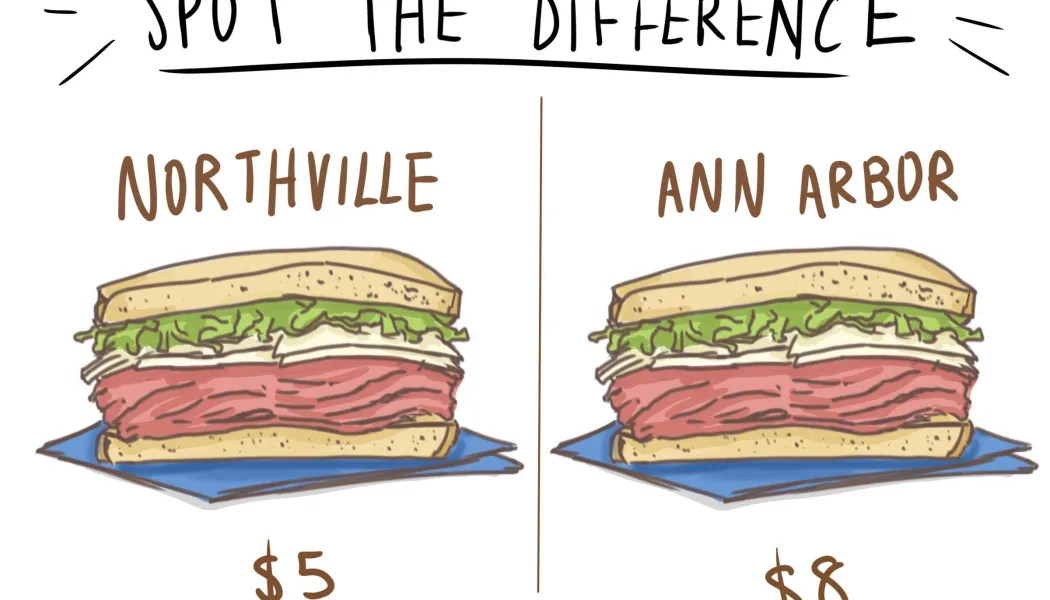 SPOT THE DIFFERENCE
NORTHVILLE
ANN ARBOR
$5
$8